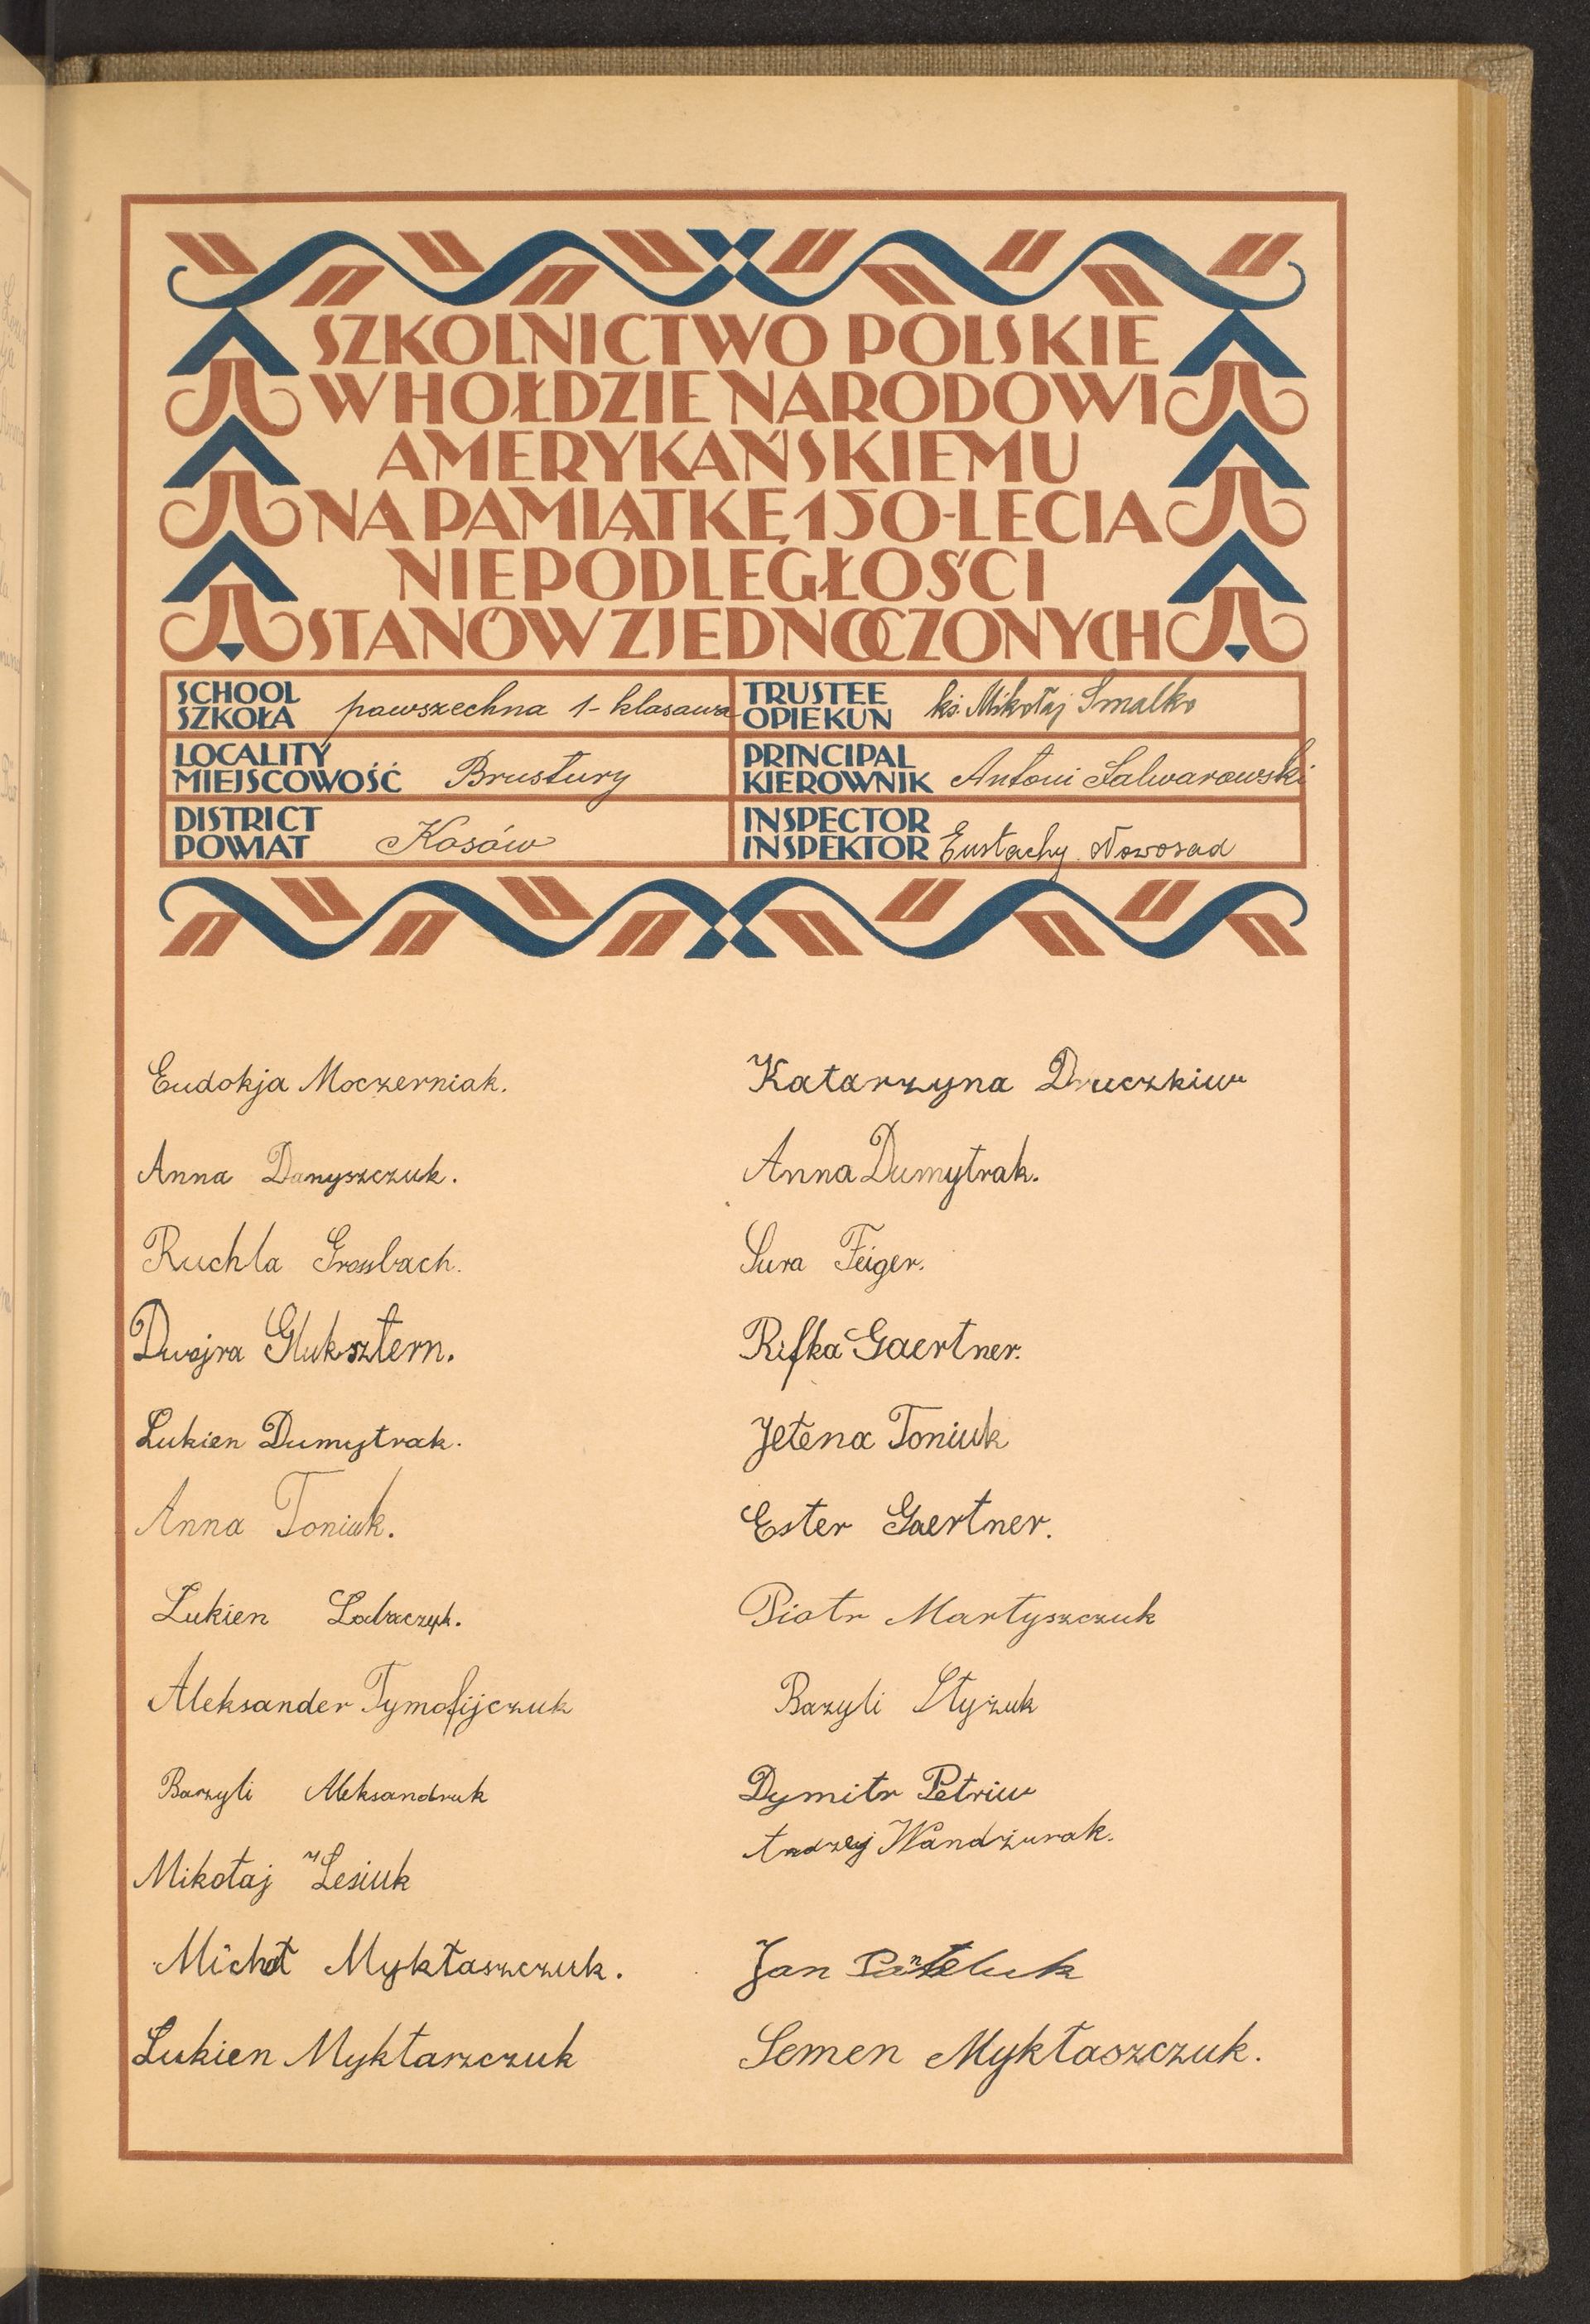 SZKOLNICTWO POLSKIE
W HOŁDZIE NARODOWI
AMERYKAŃSKIEMU
NA PAMIĄTKĘ 150-LECIA
NIEPODLEGŁOŚCI
STANÓW ZJEDNOCZONYCH
SCHOOL
SZKOŁA powszechna 1-klasowa
TRUSTEE
OPIEKUN ks. Mikołaj Smalko
LOCALITY
MIEJSCOWOŚĆ Brustury
PRINCIPAL
KIEROWNIK Antoni Salwarowski
DISTRICT
POWIAT Kosów
INSPECTOR
INSPEKTOR Eustachy Nowosad
Eudokja Moczerniak.
Anna Danyszczuk.
Ruchla Grossbach.
Dwojra Gluksztern.
Łukien Dumytrak.
Anna Toniuk.
Łukien Łabaczyk.
Aleksander Tymofijczuk
Bazyli Aleksandruk
Mikołaj Lesiuk
Michał Mykłaszczuk.
Łukien Mykłaszczuk
Katarzyna Druczkiw
Anna Dumytrak.
Sura Feiger.
Rifka Gaertner.
Jełena Toniuk
Ester Gaertner.
Piotr Martyszczuk
Bazyli Styżuk
Dymitr Petriw
Andrzej Wandżurak.
Jan
Semen Mykłaszczuk.